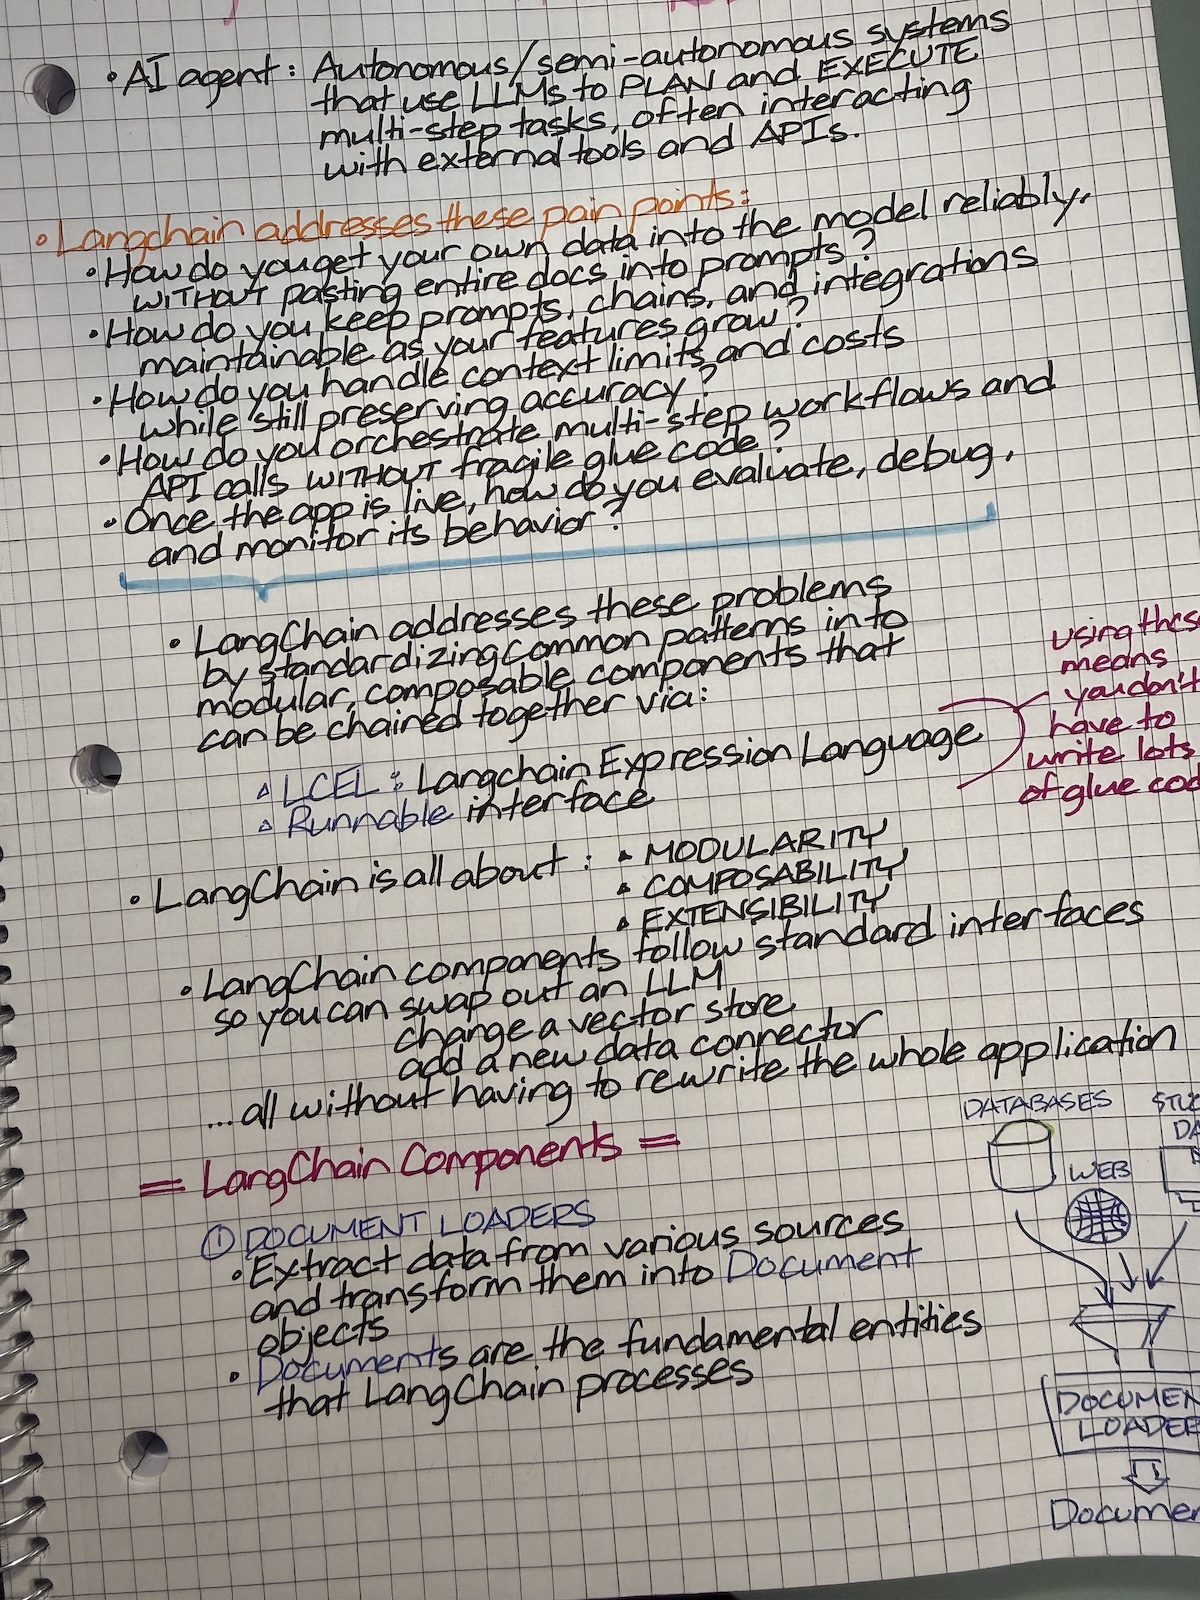 • AI agent : Autonomous/semi-autonomous systems
that use LLMs to PLAN and EXECUTE
multi-step tasks, often interacting
with external tools and APIs.
• Langchain addresses these pain points:
• How do you get your own data into the model reliably,
WITHOUT pasting entire docs into prompts?
• How do you keep prompts, chains, and integrations
maintainable as your features grow?
• How do you handle context limits and costs
while still preserving accuracy?
• How do you orchestrate multi-step workflows and
API calls WITHOUT fragile glue code?
• Once the app is live, how do you evaluate, debug,
and monitor its behavior?
• LangChain addresses these problems
by standardizing common patterns into
modular, composable components that
can be chained together via:
△ LCEL : Langchain Expression Language
△ Runnable interface
using these
means
you don't
have to
write lots
of glue cod
• LangChain is all about :
▲ MODULARITY
▲ COMPOSABILITY
▲ EXTENSIBILITY
• LangChain components follow standard interfaces
so you can swap out an LLM
change a vector store
add a new data connector
...all without having to rewrite the whole application
= LangChain Components =
① DOCUMENT LOADERS
• Extract data from various sources
and transform them into Document
objects
• Documents are the fundamental entities
that LangChain processes
DATABASES
WEB
DA
DOCUMEN
LOADE
Documen